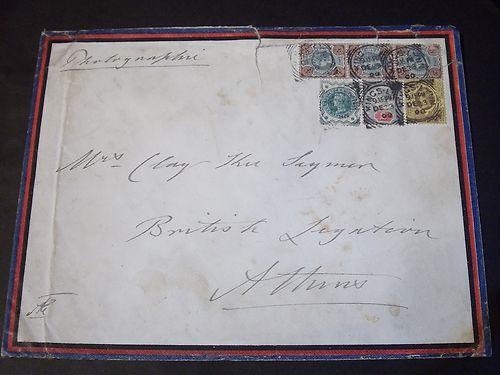 Photographie
KING'S L
DE 3
00
Mrs Clay Ker Seymer
British Legation
Athens